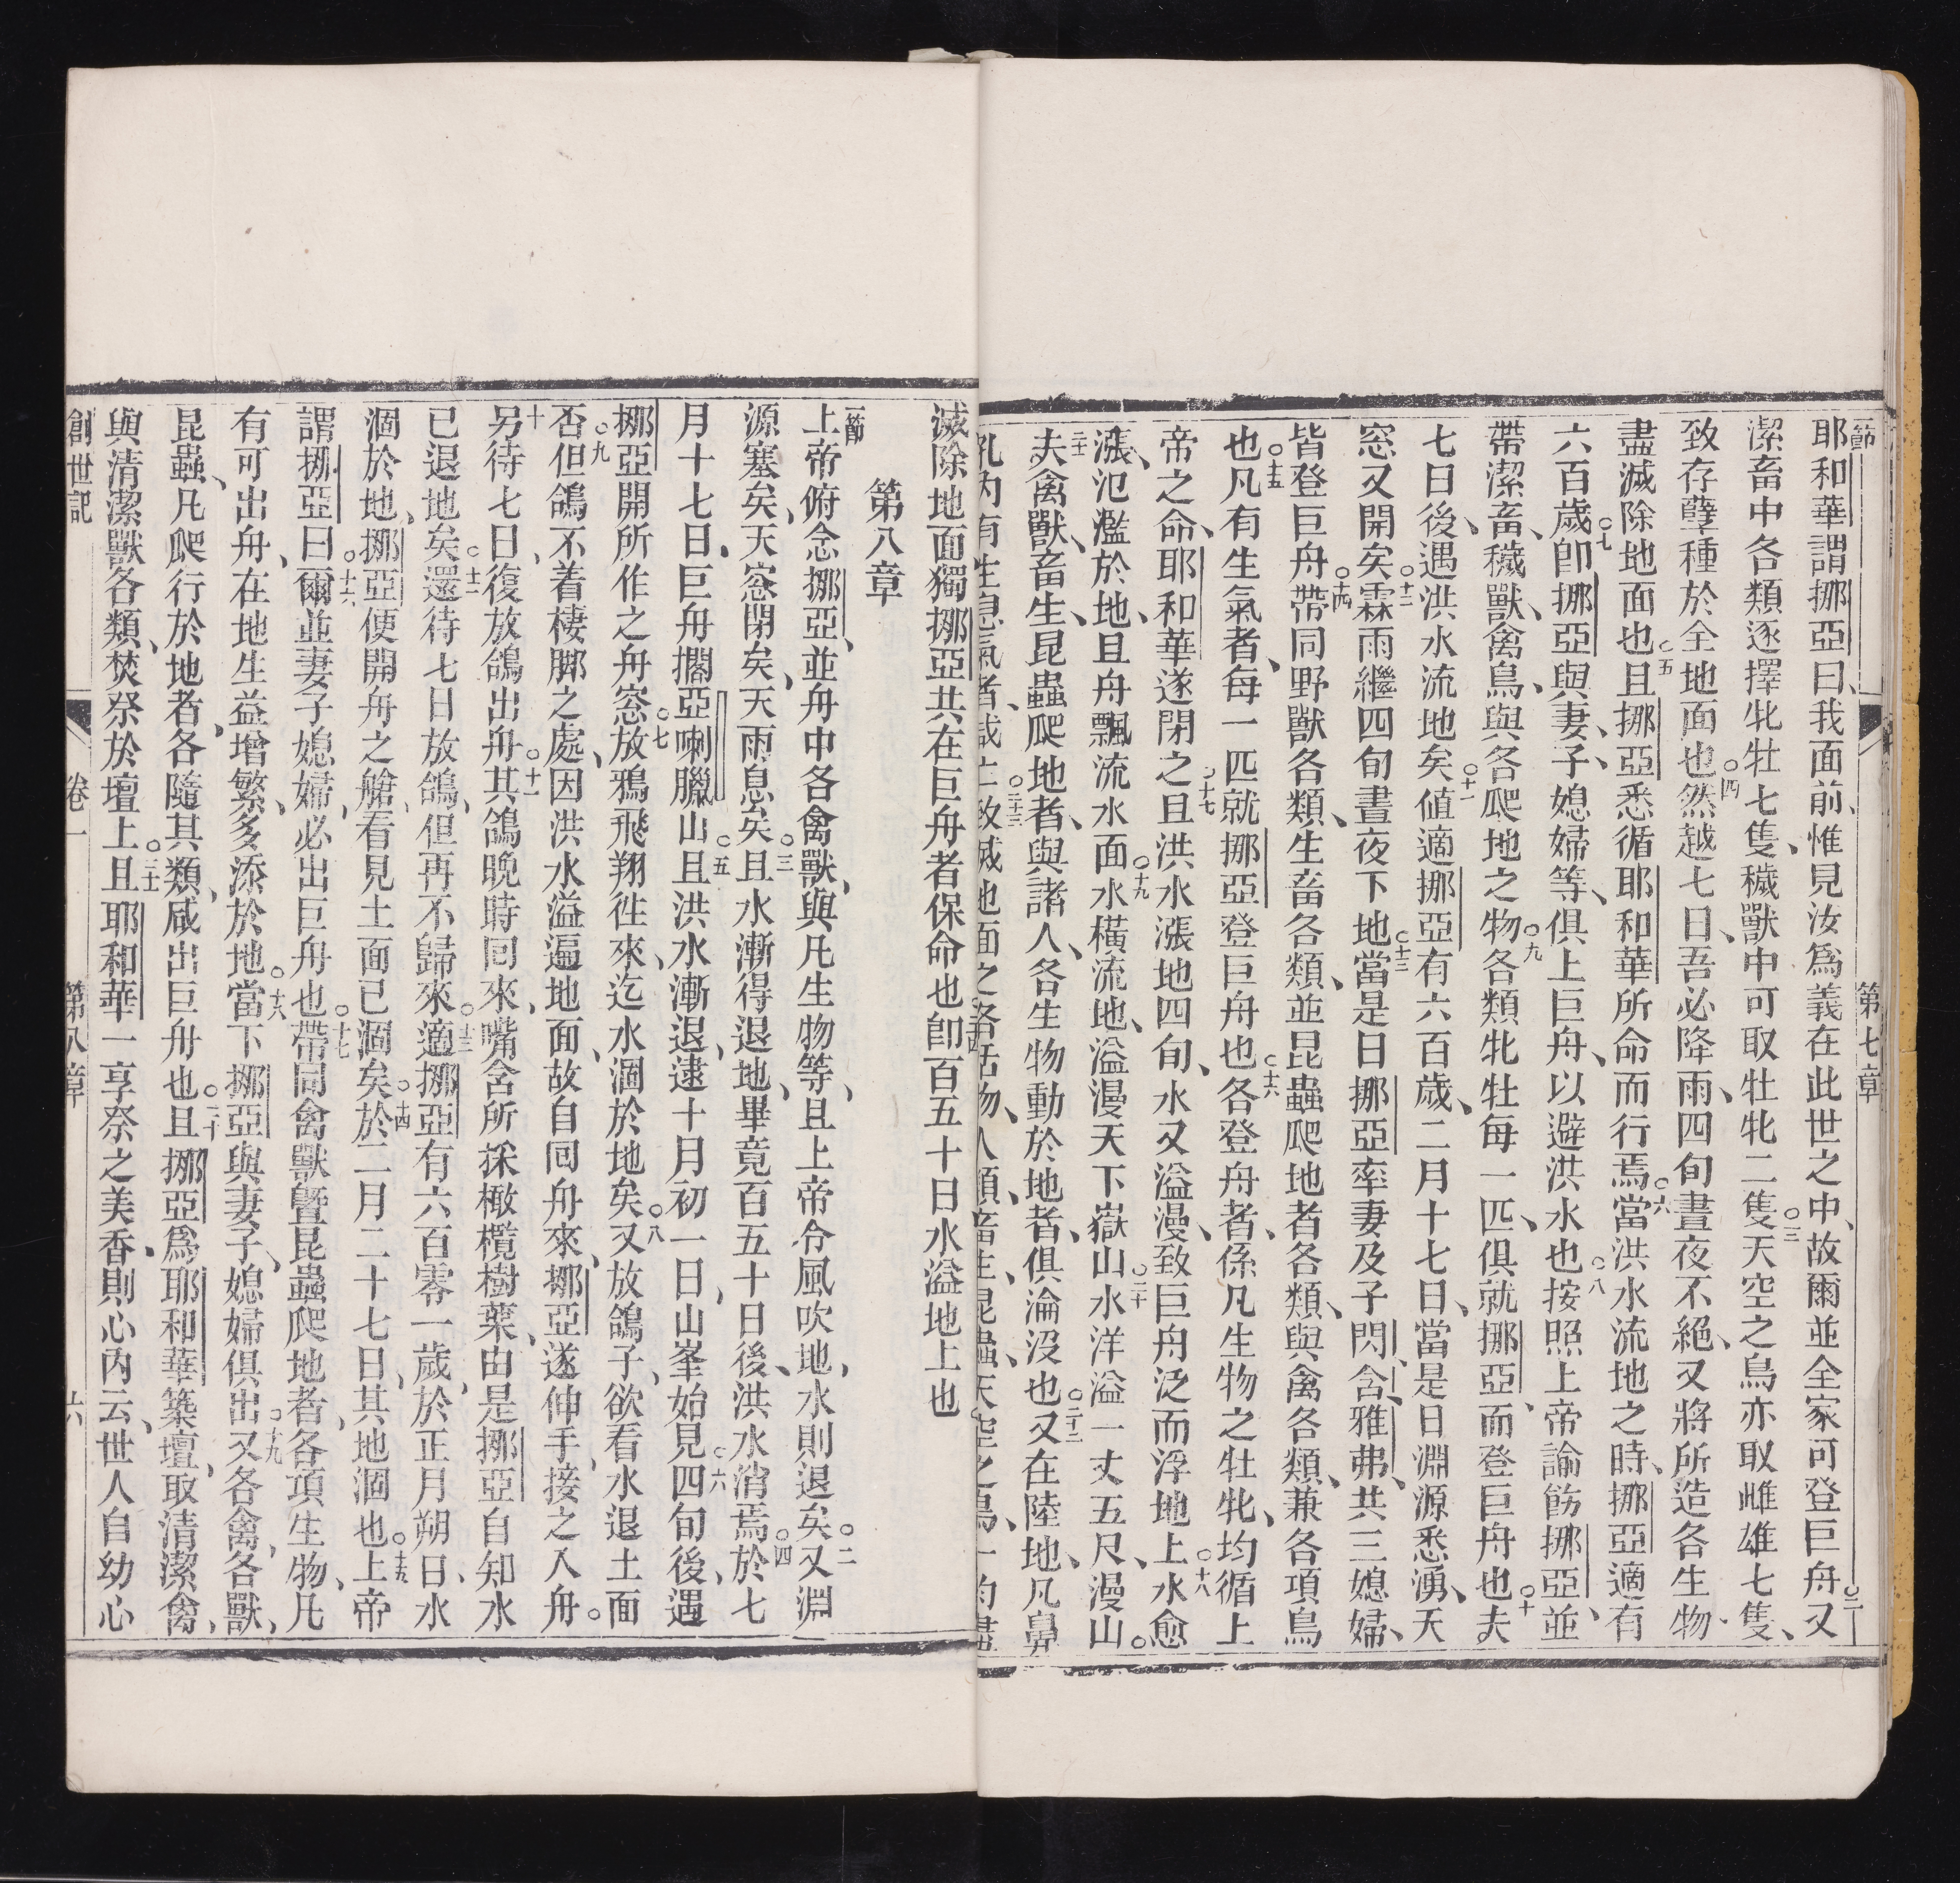 第七章
一節
耶和華謂挪亞曰、我面前、惟見汝爲義在此世之中、故爾並全家可登巨舟○二又
潔畜中各類逐擇牝牡七隻、穢獸中可取牡牝二隻○三天空之鳥亦取雌雄七隻、
致存孽種於全地面也○四然越七日、吾必降雨、四旬晝夜不絕、又將所造各生物
盡滅除地面也○五且挪亞悉循耶和華所命而行焉○六當洪水流地之時、挪亞適有
六百歲○七卽挪亞與妻、子、媳婦等、俱上巨舟、以避洪水也○八按照上帝諭飭挪亞、並
帶潔畜、穢獸、禽鳥、與各爬地之物○九各類牝牡每一匹、俱就挪亞、而登巨舟也○十夫
七日後、遇洪水流地矣○十一値適挪亞有六百歲、二月十七日、當是日淵源悉湧、天
窓又開矣○十二霖雨繼四旬晝夜下地○十三當是日挪亞率妻及子閃、含、雅弗、共三媳婦、
皆登巨舟○十四帶同野獸各類、生畜各類、並昆蟲爬地者各類、與禽各類、兼各項鳥
也○十五凡有生氣者、每一匹就挪亞登巨舟也○十六各登舟者、係凡生物之牡牝、均循上
帝之命、耶和華遂閉之○十七且洪水漲地四旬、水又溢漫、致巨舟泛而浮地上○十八水愈
漲、氾濫於地、且舟飄流水面○十九水橫流地、溢漫天下嶽山○二十水洋溢一丈五尺、漫山。
二十一夫禽獸、畜生、昆蟲爬地者、與諸人、各生物動於地者、俱淪沒也○二十二又在陸地、凡鼻
孔內有生息氣者、咸亡○二十三致滅地面之各活物、人類、畜生、昆蟲、天空之鳥、一均盡
滅除地面獨挪亞共在巨舟者保命也○二十四卽百五十日水溢地上也
第八章
一節
上帝俯念挪亞、並舟中各禽獸、與凡生物等、且上帝令風吹地、水則退矣○二又淵
源塞矣、天窓閉矣、天雨息矣○三且水漸得退地、畢竟百五十日後、洪水消焉○四於七
月十七日、巨舟擱亞喇臘山○五且洪水漸退、逮十月初一日、山峯始見○六四旬後、遇
挪亞開所作之舟窓○七放鴉飛翔徃來、迄水涸於地矣○八又放鴿子、欲看水退土面
否○九但鴿不着棲脚之處、因洪水溢逼地面、故自回舟來、挪亞遂伸手、接之入舟。
十另待七日、復放鴿出舟○十一其鴿晚時回來、嘴含所採橄欖樹葉、由是挪亞自知水
已退地矣○十二還待七日放鴿、但再不歸來○十三適挪亞有六百零一歲、於正月朔日、水
涸於地、挪亞便開舟之艙、看見土面已涸矣○十四於二月二十七日、其地涸也○十五上帝
謂挪亞曰○十六爾並妻子媳婦、必出巨舟也○十七帶同禽獸曁昆蟲爬地者、各項生物、凡
有可出舟、在地生益增繁、多添於地○十八當下挪亞與妻子、媳婦俱出○十九又各禽、各獸、
昆蟲、凡爬行於地者、各隨其類、咸出巨舟也○二十且挪亞爲耶和華築壇、取清潔禽、
與清潔獸各類、焚祭於壇上○二十一且耶和華一享祭之美香、則心內云、世人自幼心
創世記　卷一　第八章　六